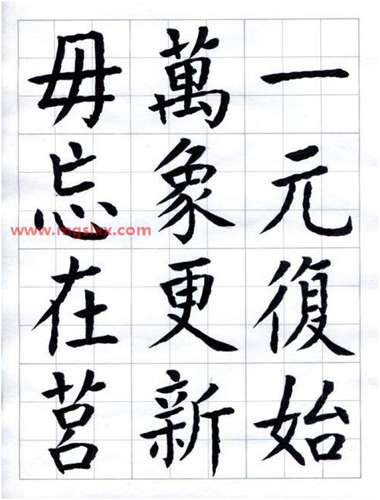 一元復始
萬象更新
毋忘在莒
www.mgslxx.com